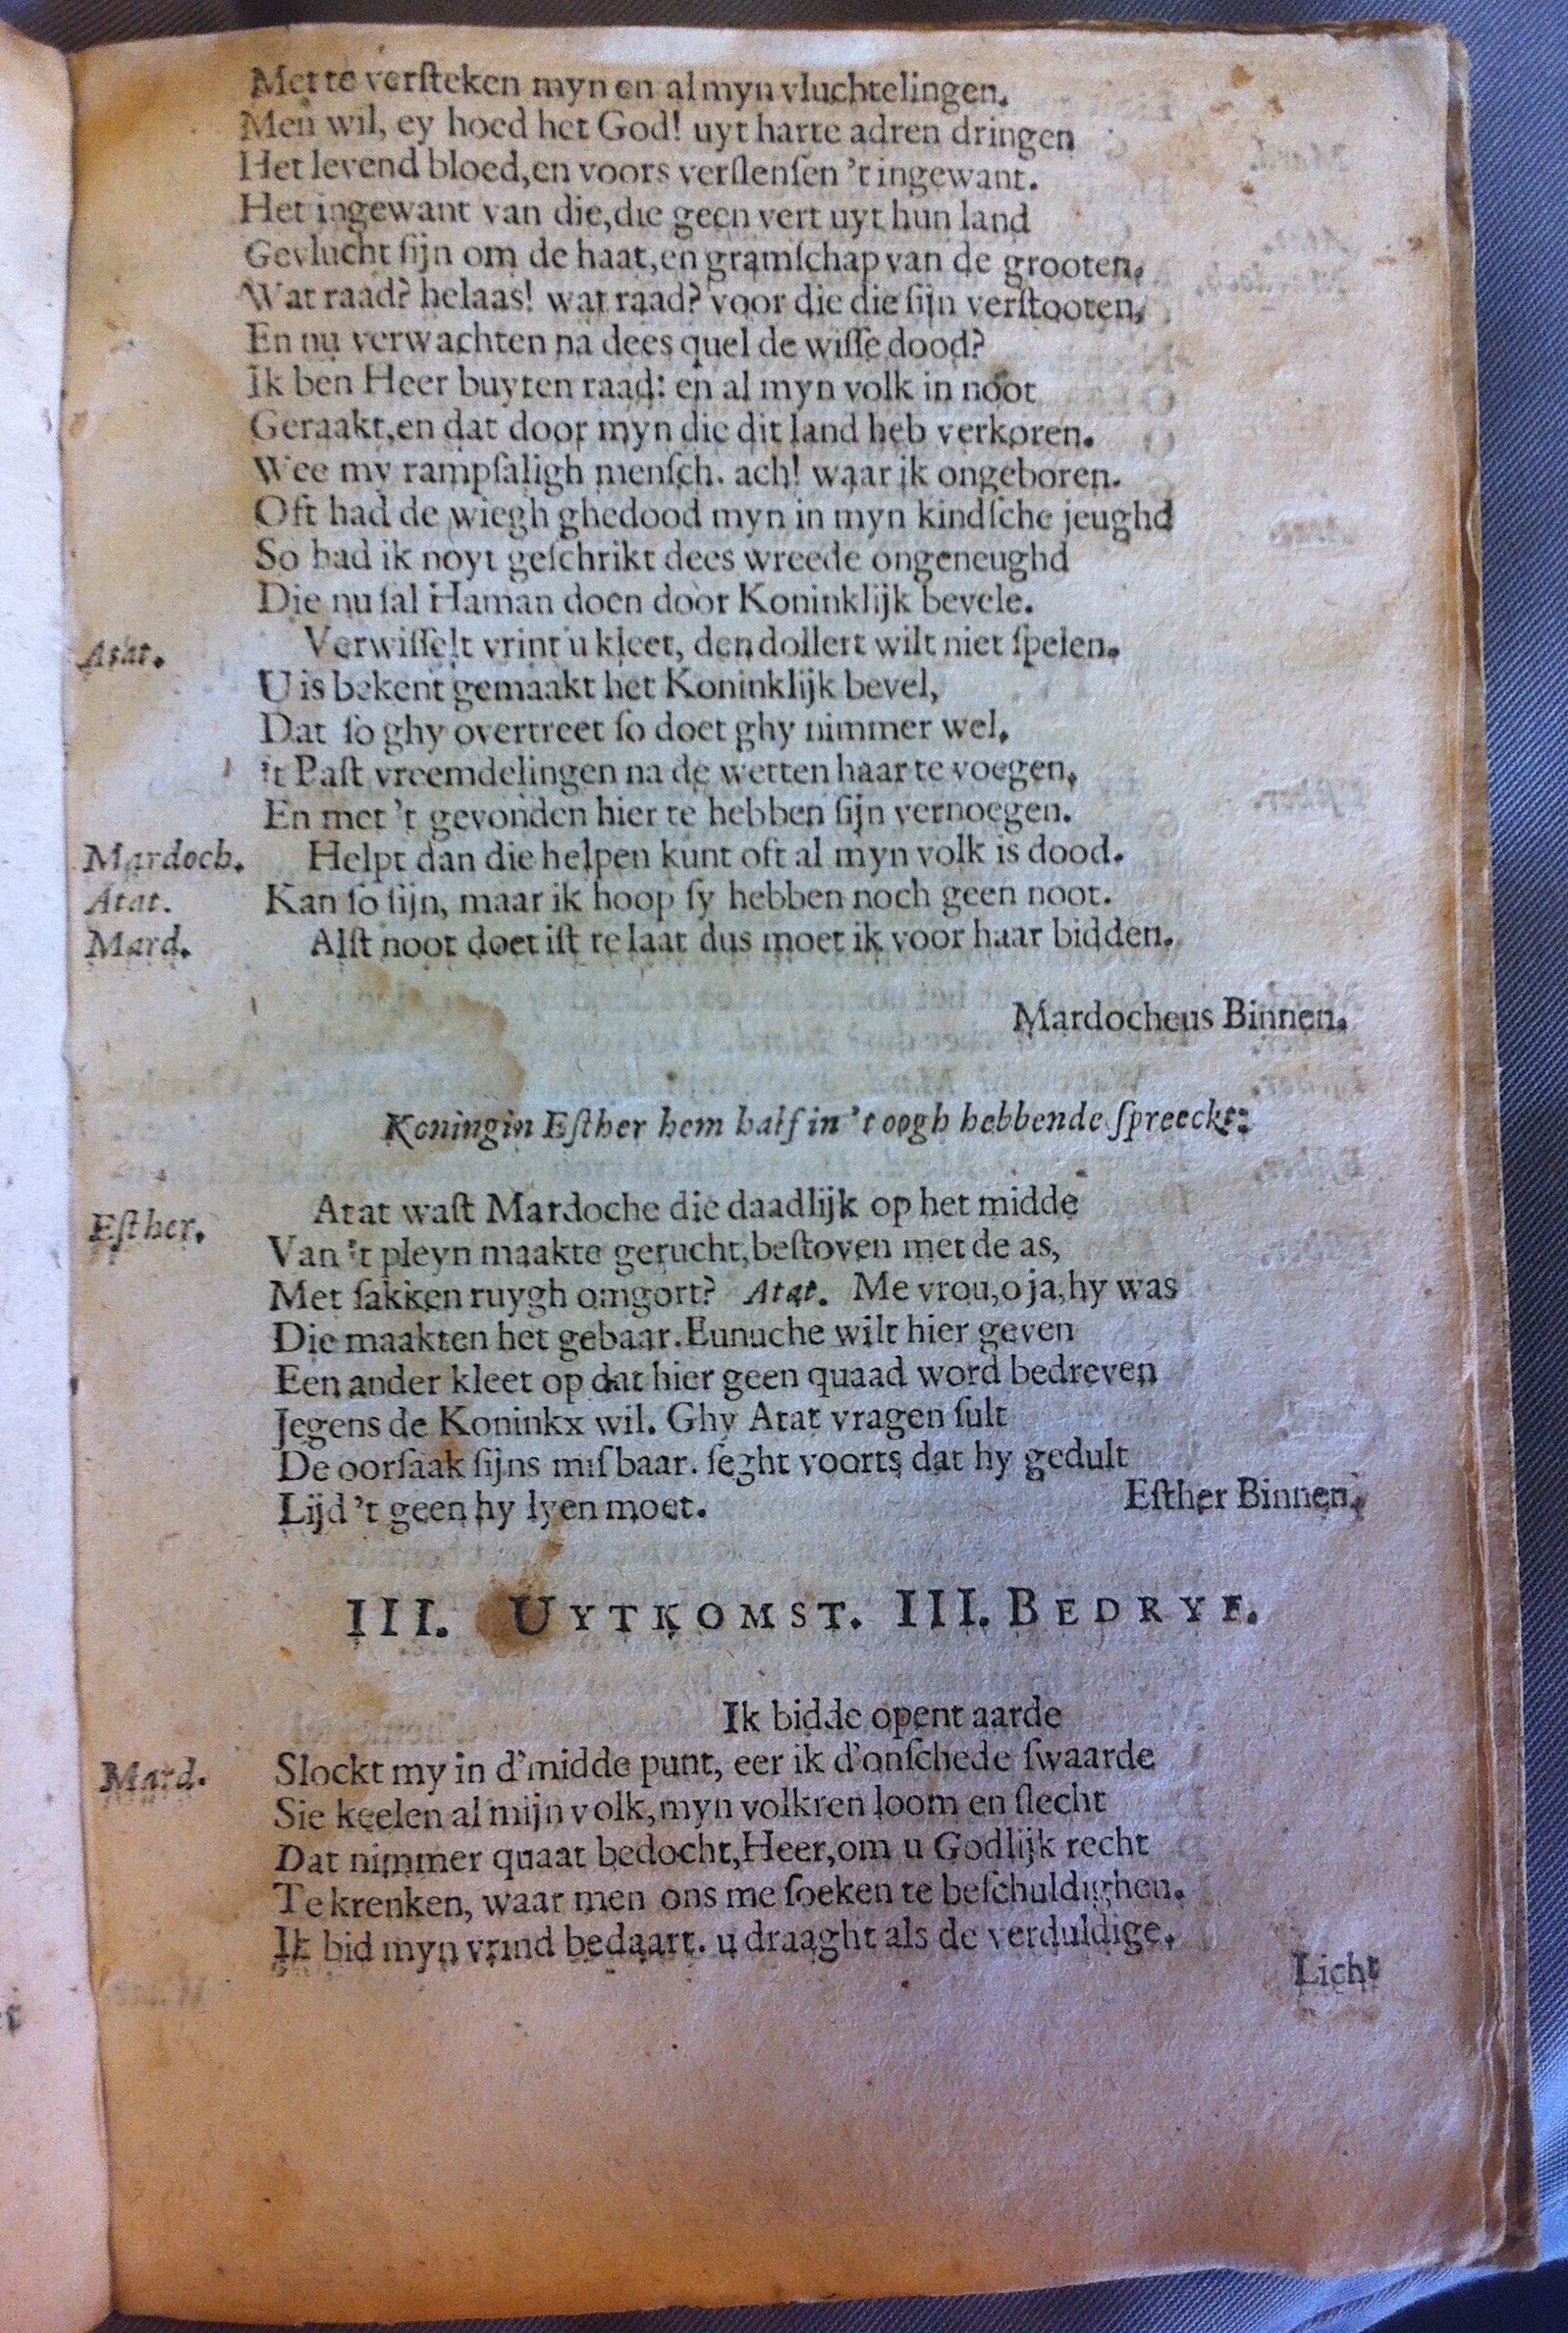 Met te verſteken myn en al myn vluchtelingen.
Men wil, ey hoed het God! uyt harte adren dringen
Het levend bloed, en voors verſlenſen 't ingewant.
Het ingewant van die, die geen vert uyt hun land
Gevlucht ſijn om de haat, en gramſchap van de grooten,
Wat raad? helaas! wat raad? voor die die ſijn verſtooten,
En nu verwachten na dees quel de wiſſe dood?
Ik ben Heer buyten raad: en al myn volk in noot
Geraakt, en dat door myn die dit land heb verkoren.
Wee my rampſaligh menſch. ach! waar ik ongeboren.
Oft had de wiegh ghedood myn in myn kindſche jeughd
So had ik noyt geſchrikt dees wreede ongeneughd
Die nu ſal Haman doen door Koninklijk bevele.
Atat. Verwiſſelt vrint u kleet, den dollert wilt niet ſpelen.
U is bekent gemaakt het Koninklijk bevel,
Dat ſo ghy overtreet ſo doet ghy nimmer wel,
't Paſt vreemdelingen na de wetten haar te voegen,
En met 't gevonden hier te hebben ſijn vernoegen.
Mardoch. Helpt dan die helpen kunt oft al myn volk is dood.
Atat. Kan ſo ſijn, maar ik hoop ſy hebben noch geen noot.
Mard. Alſt noot doet iſt te laat dus moet ik voor haar bidden.
Mardocheus Binnen.
Koningin Eſther hem half in 't oogh hebbende ſpreeckt:
Eſther. Atat waſt Mardoche die daadlijk op het midde
Van 't pleyn maakte gerucht, beſtoven met de as,
Met ſakken ruygh omgort? Atat. Me vrou, o ja, hy was
Die maakten het gebaar. Eunuche wilt hier geven
Een ander kleet op dat hier geen quaad word bedreven
Jegens de Koninkx wil. Ghy Atat vragen ſult
De oorſaak ſijns miſbaar. ſeght voorts dat hy gedult
Lijd 't geen hy lyen moet. Eſther Binnen.
III. UYTKOMST. III. BEDRYF.
Ik bidde opent aarde
Mard. Slockt my in d'midde punt, eer ik d'onſchede ſwaarde
Sie keelen al mijn volk, myn volkren loom en ſlecht
Dat nimmer quaat bedocht, Heer, om u Godlijk recht
Te krenken, waar men ons me ſoeken te beſchuldighen.
Ik bid myn vrind bedaart. u draaght als de verduldige,
Licht